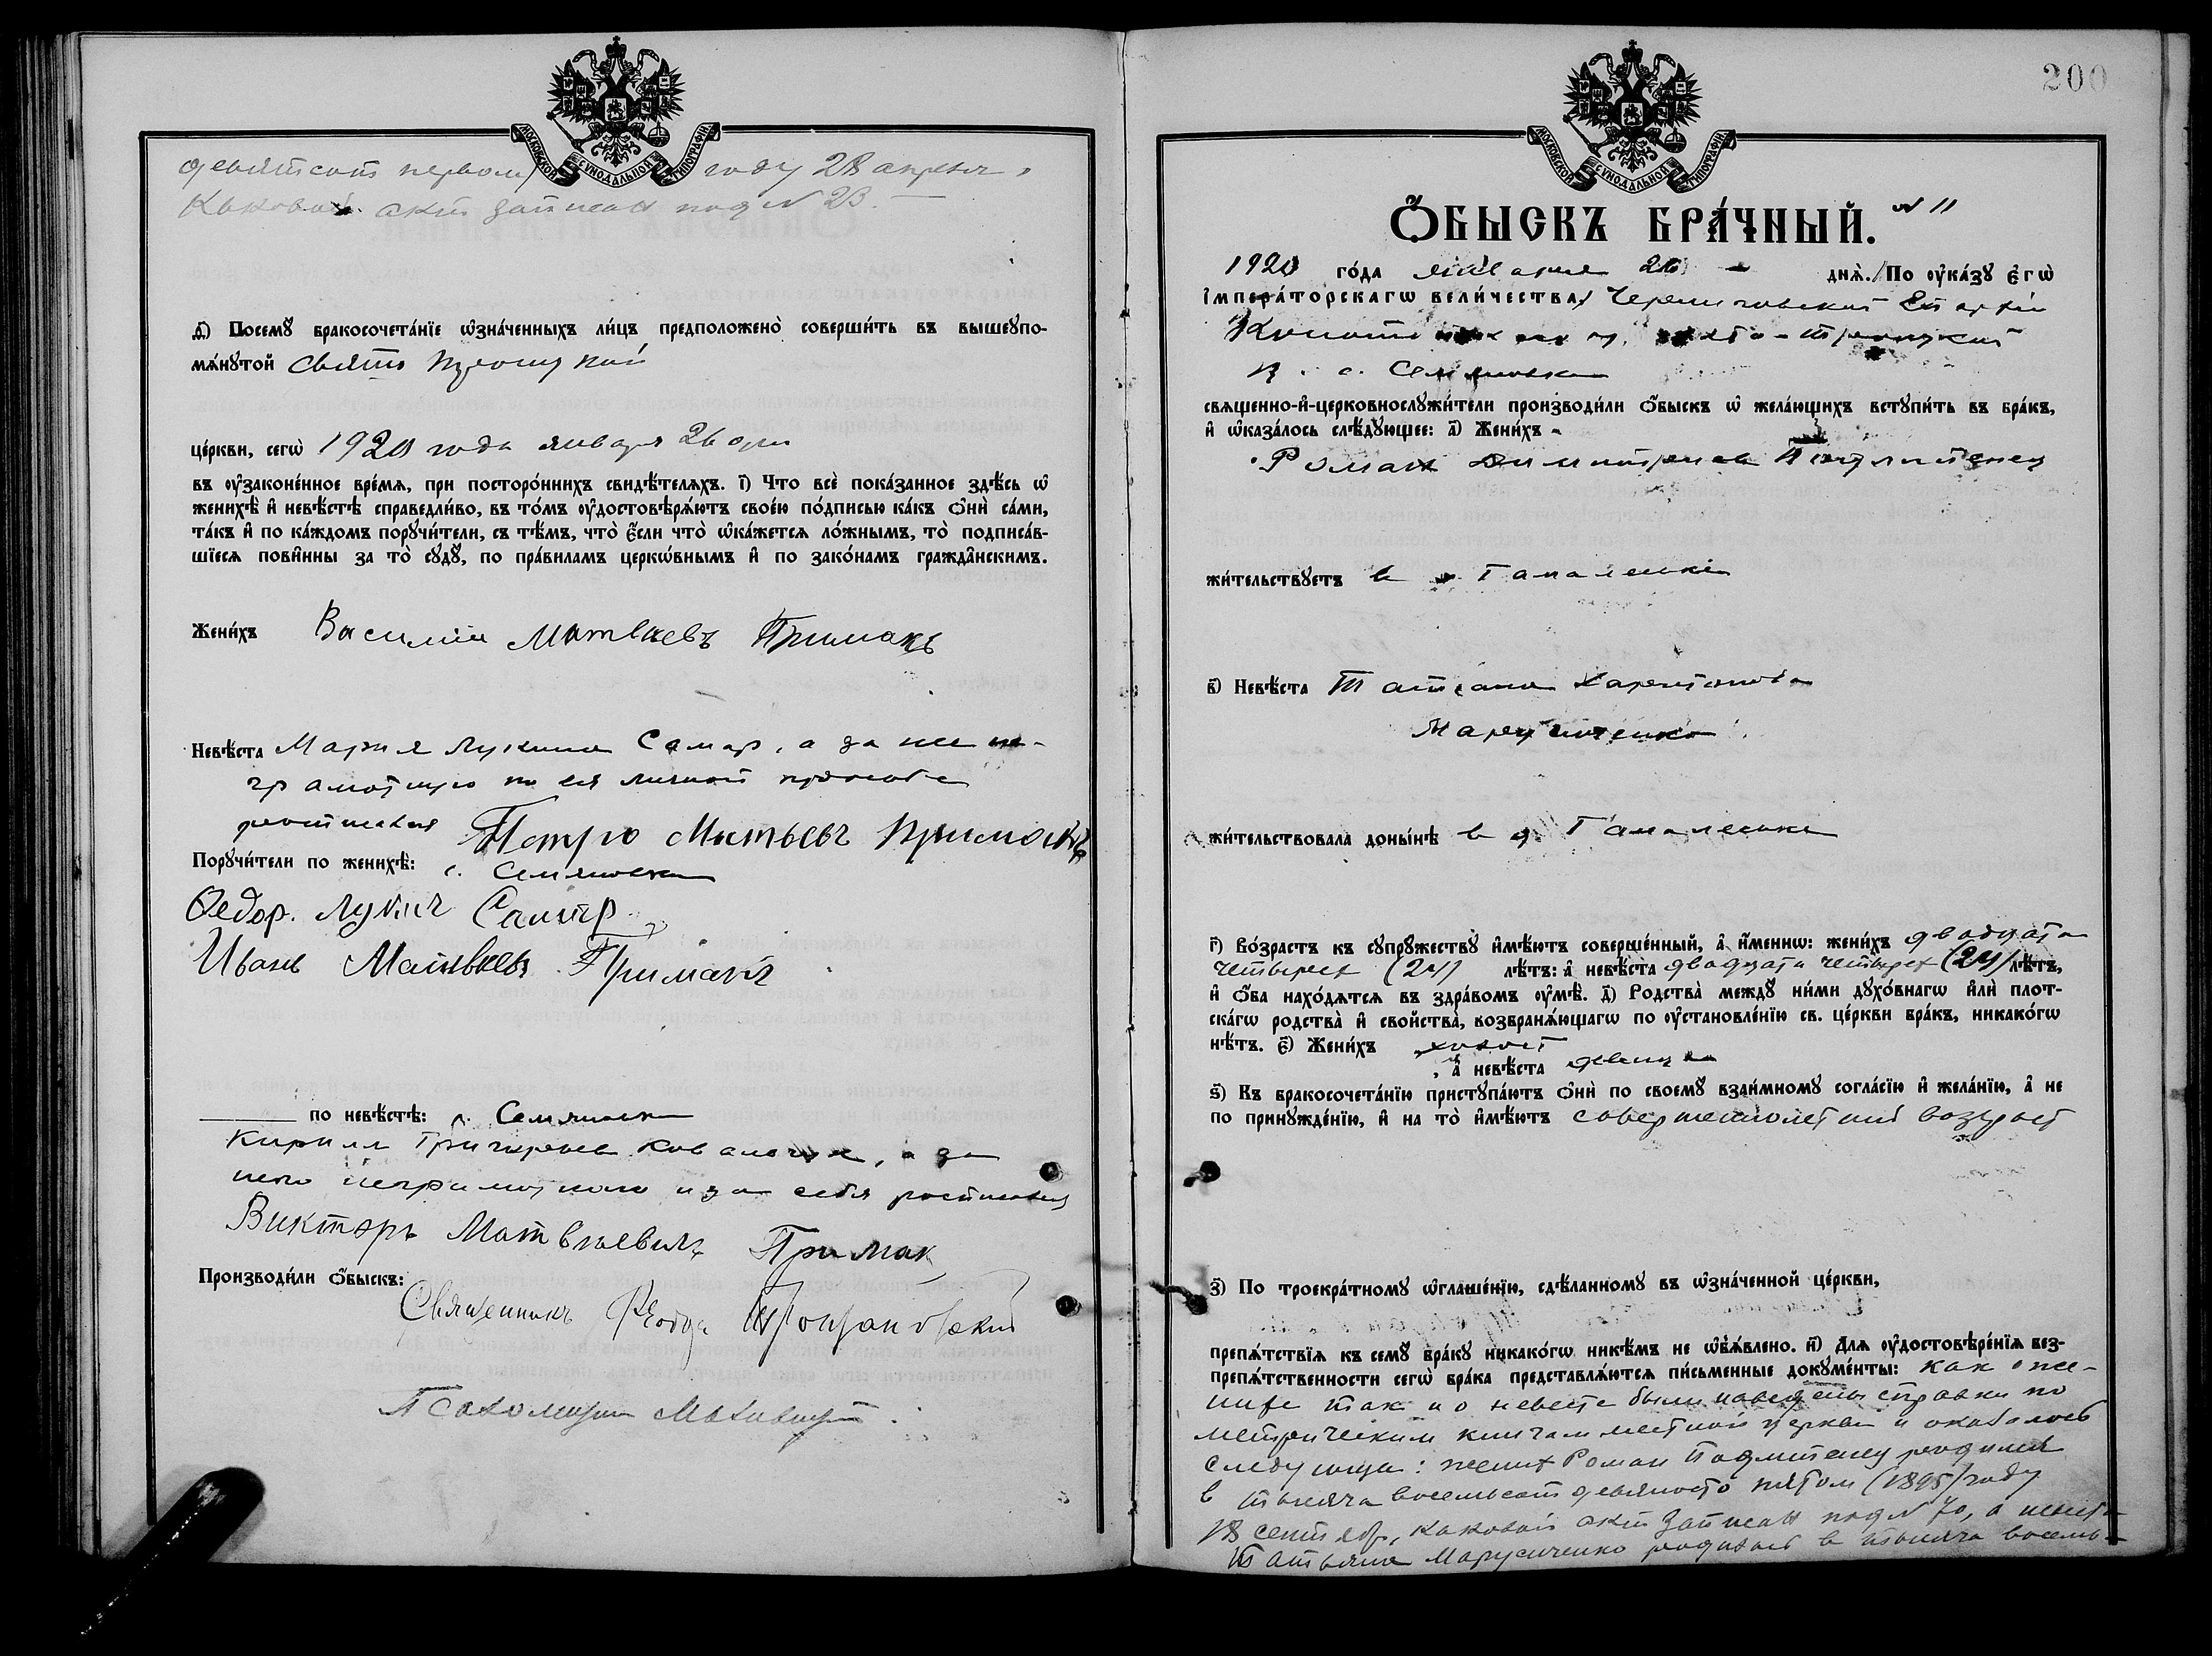 МОСКОВСКОЙ СѴНОДАЛЬНОЙ ТИПОГРАФІИ
девятсот первом году 28 апреля,
каковой акт записан под N 23. —
д҃) Посемꙋ̀ бракосочета́нїе ѡ҆зна́ченныхъ ли́цъ предположено̀ соверши́ть въ вышеꙋпо-
мѧ́нꙋтой Свято Троицкой
це́ркви, сегѡ̀ 1920 года января 26 дня
въ ᲂу҆зако́ненное вре́мѧ, при посторо́ннихъ свидѣ́телѧхъ. і҃) Что всѐ пока́занное здѣ́сь ѡ҆
женихѣ̀ и҆ невѣ́стѣ справедли́во, въ то́мъ ᲂу҆достовѣрѧ́ютъ свое́ю по́дписью ка́къ ѻ҆нѝ са́ми,
та́къ и҆ по ка́ждомъ порꙋчи́тели, съ тѣ́мъ, что̀ є҆́сли что̀ ѡ҆ка́жетсѧ ло́жнымъ, то̀ подписа́в-
шїесѧ пови́нны за то̀ сꙋдꙋ̀, по пра́виламъ церкѡ́внымъ и҆ по зако́намъ гражда́нскимъ.
Жени́хъ Василий Матвѣевъ Примакъ
Невѣ́ста Мария Лукина Самар, а за нее не-
грамотную по ея личной просьбе
росписался Петро Матьевъ Примакъ
Порꙋчи́тели по женихѣ̀: с. Семяновка
Ѳедор. Лукич Самар
Иванъ Матвѣевъ Примакъ
по невѣ́стѣ: с. Семяновка
Кирилл Григорьев, а за
него неграмотного и за себя росписался
Викторъ Матвѣевичъ Примак
Производи́ли ѻ҆́быскъ:
Священникъ
Псаломщик
200
МОСКОВСКОЙ СѴНОДАЛЬНОЙ ТИПОГРАФІИ
Ѻ҆́БЫСКЪ БРА́ЧНЫЙ. N 11
1920 го́да января 26 днѧ̀. По ᲂу҆ка́зꙋ є҆гѡ̀
і҆мпера́торскагѡ вели́чества Черниговской Епархии
Троицкой
ц. с. Семяновка
свѧщенно-и҆-церковнослꙋжи́тели производи́ли ѻ҆́быскъ ѡ҆ жела́ющихъ встꙋпи́ть въ бра́къ,
и҆ ѡ҆каза́лось слѣ́дꙋющее: а҃) Жени́хъ
Роман Димитриев
жи́тельствꙋетъ в
в҃) Невѣ́ста Татиана Харитонова
Марусиченко
жи́тельствовала доны́нѣ в д.
г҃) Во́зрастъ къ сꙋпрꙋ́жествꙋ и҆мѣ́ютъ соверше́нный, а҆ и҆́менно: жени́хъ двадцати
четырех (24) лѣ́тъ: а҆ невѣ́ста двадцати четырех (24) лѣ́тъ,
и҆ ѻ҆́ба нахо́дѧтсѧ въ здра́вомъ ᲂу҆мѣ̀. д҃) Родства̀ междꙋ̀ ни́ми дꙋхо́внагѡ и҆лѝ плот-
ска́гѡ родства̀ и҆ сво́йства, возбранѧ́ющагѡ по ᲂу҆становле́нїю св. це́ркви бра́къ, никако́гѡ
нѣ́тъ. є҃) Жени́хъ холост
а҆ невѣ́ста девица
ѕ҃) Къ бракосочета́нїю пристꙋпа́ютъ ѻ҆нѝ по своемꙋ̀ взаи́мномꙋ согла́сїю и҆ жела́нїю, а҆ не
по принꙋжде́нїю, и҆ на то̀ и҆мѣ́ютъ совершеннолетний возраст
з҃) По троекра́тномꙋ ѡ҆глаше́нїю, сдѣ́ланномꙋ въ ѡ҆зна́ченной це́ркви,
препѧ́тствїѧ къ семꙋ̀ бра́кꙋ никако́гѡ никѣ́мъ не ѡ҆бѧ́влено. и҃) Длѧ ᲂу҆достовѣре́нїѧ без-
препѧ́тственности сегѡ̀ бра́ка представлѧ́ютсѧ пи́сьменные докꙋме́нты: как о же-
нихе так и о невесте были наведены справки по
метрическим книгам местной церкви и оказалось
следующее: жених Роман родился
в тысяча восемьсот девяносто пятом (1895) году
18 сентября, каковой акт записан под N 70, а невеста
Татьяна Марусиченко родилась в тысяча восемь-